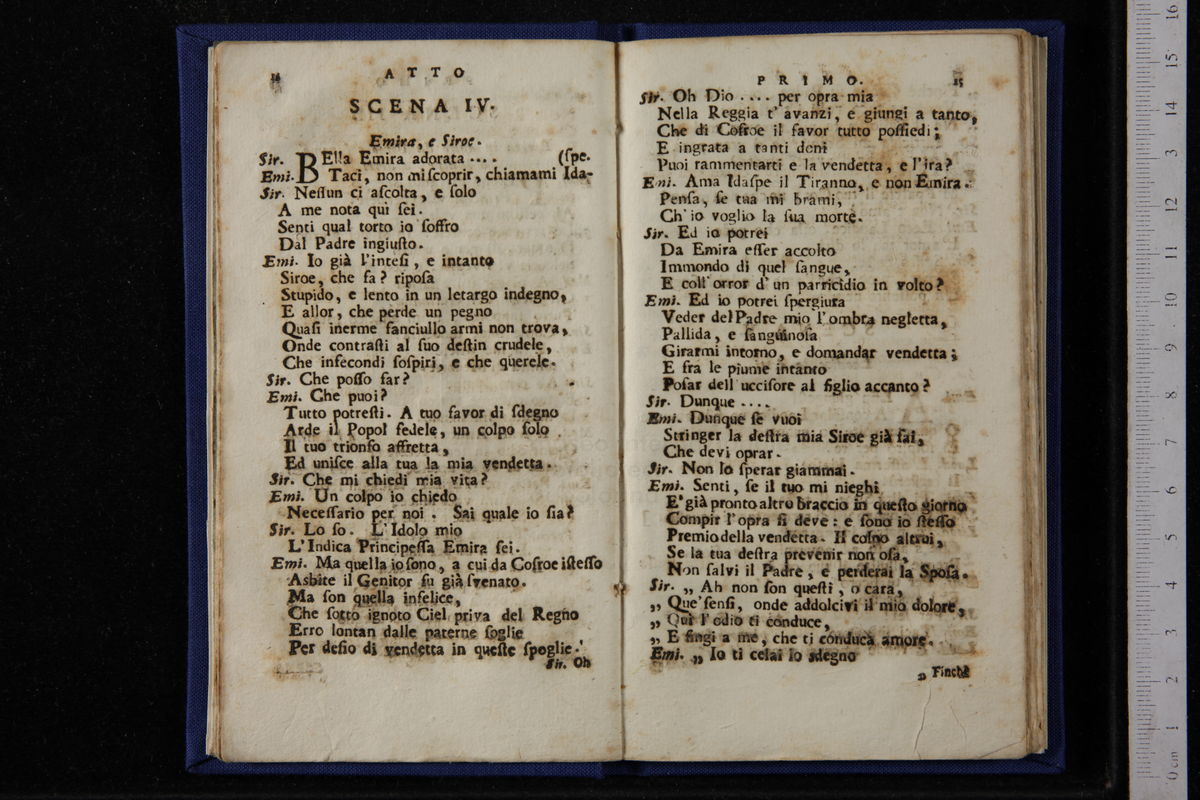 14
ATTO
SCENA IV.
Emira, e Siroe.
Sir. BElla Emira adorata .... (ſpe.
Emi. Taci, non mi ſcoprir, chiamami Ida-
Sir. Neſſun ci aſcolta, e ſolo
A me nota qui ſei.
Senti qual torto io ſoffro
Dal Padre ingiuſto.
Emi. Io già l'inteſi, e intanto
Siroe, che fa? ripoſa
Stupido, e lento in un letargo indegno,
E allor, che perde un pegno
Quaſi inerme fanciullo armi non trova,
Onde contraſti al ſuo deſtin crudele,
Che infecondi ſoſpiri, e che querele.
Sir. Che poſſo far?
Emi. Che puoi?
Tutto potreſti. A tuo favor di ſdegno
Arde il Popol fedele, un colpo ſolo
Il tuo trionfo affretta,
Ed uniſce alla tua la mia vendetta.
Sir. Che mi chiedi mia vita?
Emi. Un colpo io chiedo
Neceſſario per noi. Sai quale io ſia?
Sir. Lo ſo. L'Idolo mio
L'Indica Principeſſa Emira ſei.
Emi. Ma quella io ſono, a cui da Coſroe iſteſſo
Asbite il Genitor fu già ſvenato.
Ma ſon quella infelice,
Che ſotto ignoto Ciel priva del Regno
Erro lontan dalle paterne ſoglie
Per deſio di vendetta in queſte ſpoglie.
Sir. Oh
PRIMO.
15
Sir. Oh Dio .... per opra mia
Nella Reggia t'avanzi, e giungi a tanto,
Che di Coſroe il favor tutto poſſiedi;
E ingrata a tanti doni
Puoi rammentarti e la vendetta, e l'ira?
Emi. Ama Idaſpe il Tiranno, e non Emira.
Penſa, ſe tua mi brami,
Ch'io voglio la ſua morte.
Sir. Ed io potrei
Da Emira eſſer accolto
Immondo di quel ſangue,
E coll'orror d'un parricidio in volto?
Emi. Ed io potrei ſpergiura
Veder del Padre mio l'ombra negletta,
Pallida, e ſanguinoſa
Girarmi intorno, e domandar vendetta;
E fra le piume intanto
Poſar dell'ucciſore al figlio accanto?
Sir. Dunque ....
Emi. Dunque ſe vuoi
Stringer la deſtra mia Siroe già ſai,
Che devi oprar.
Sir. Non lo ſperar giammai.
Emi. Senti, ſe il tuo mi nieghi
E' già pronto altro braccio in queſto giorno
Compir l'opra ſi deve: e ſono io ſteſſo
Premio della vendetta. Il colpo altrui,
Se la tua deſtra prevenir non oſa,
Non ſalvi il Padre, e perderai la Spoſa.
Sir. „ Ah non ſon queſti, o cara,
„ Que' ſenſi, onde addolcivi il mio dolore,
„ Qui l'odio ti conduce,
„ E fingi a me, che ti conduca amore.
Emi. „ Io ti celai lo sdegno
„ Finchè